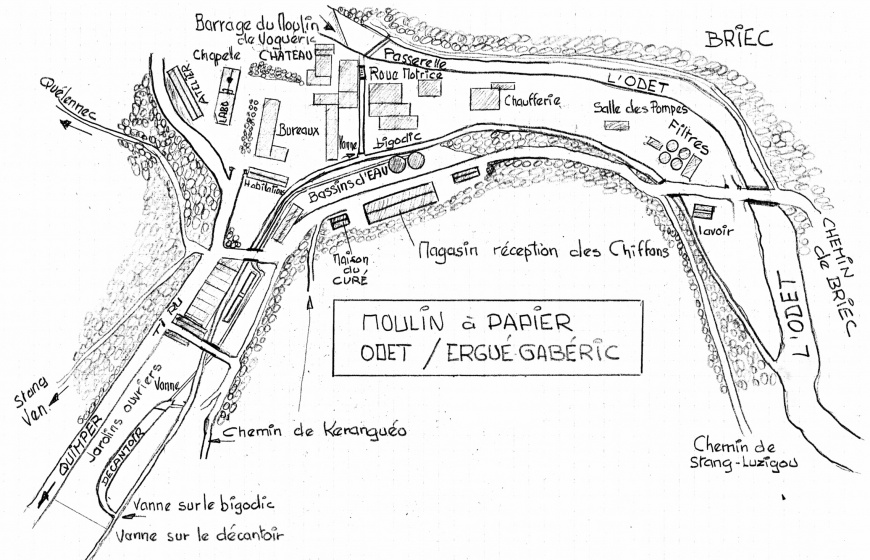 Barrage du Moulin
de Vogueric
BRIEC
Chapelle
CHÂTEAU
Passerelle
Quélennec
ATELIER
LABO
Roue Motrice
L'ODET
Chaufferie
Salle des Pompes
Bureaux
Vanne
bigodic
Filtres
Habitation
Bassins d'EAU
lavoir
Maison
du
CURÉ
Magasin réception des Chiffons
CHEMIN
de BRIEC
MOULIN à PAPIER
ODET / ERGUÉ-GABÉRIC
L'ODET
Stang
Ven
Jardins ouvriers
Vanne
QUIMPER
DECANTOIR
Chemin de Keranguéo
Chemin de
Stang-Luzigou
Vanne sur le bigodic
Vanne sur le décantoir